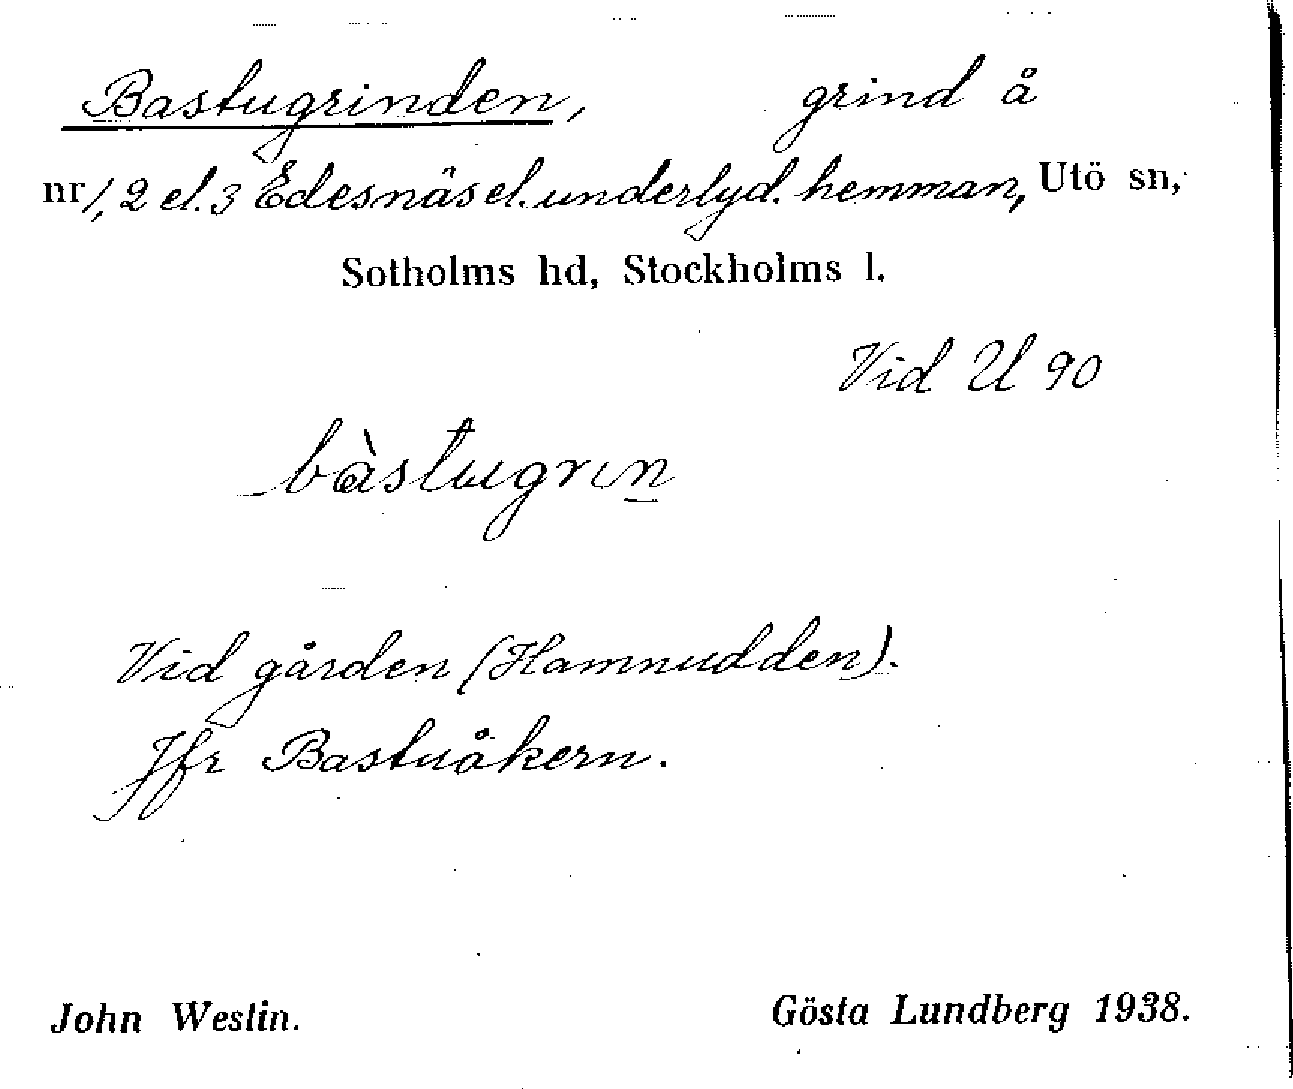 Bastugrinden, grind å
nr 1, 2 el. 3 Edesnäs el. underlyd. hemman, Utö sn,
Sotholms hd, Stockholms l.
Vid U 90
bàstugrin
Vid gården (Hamnudden).
Jfr Bastuåkern.
John Westin. Gösta Lundberg 1938.